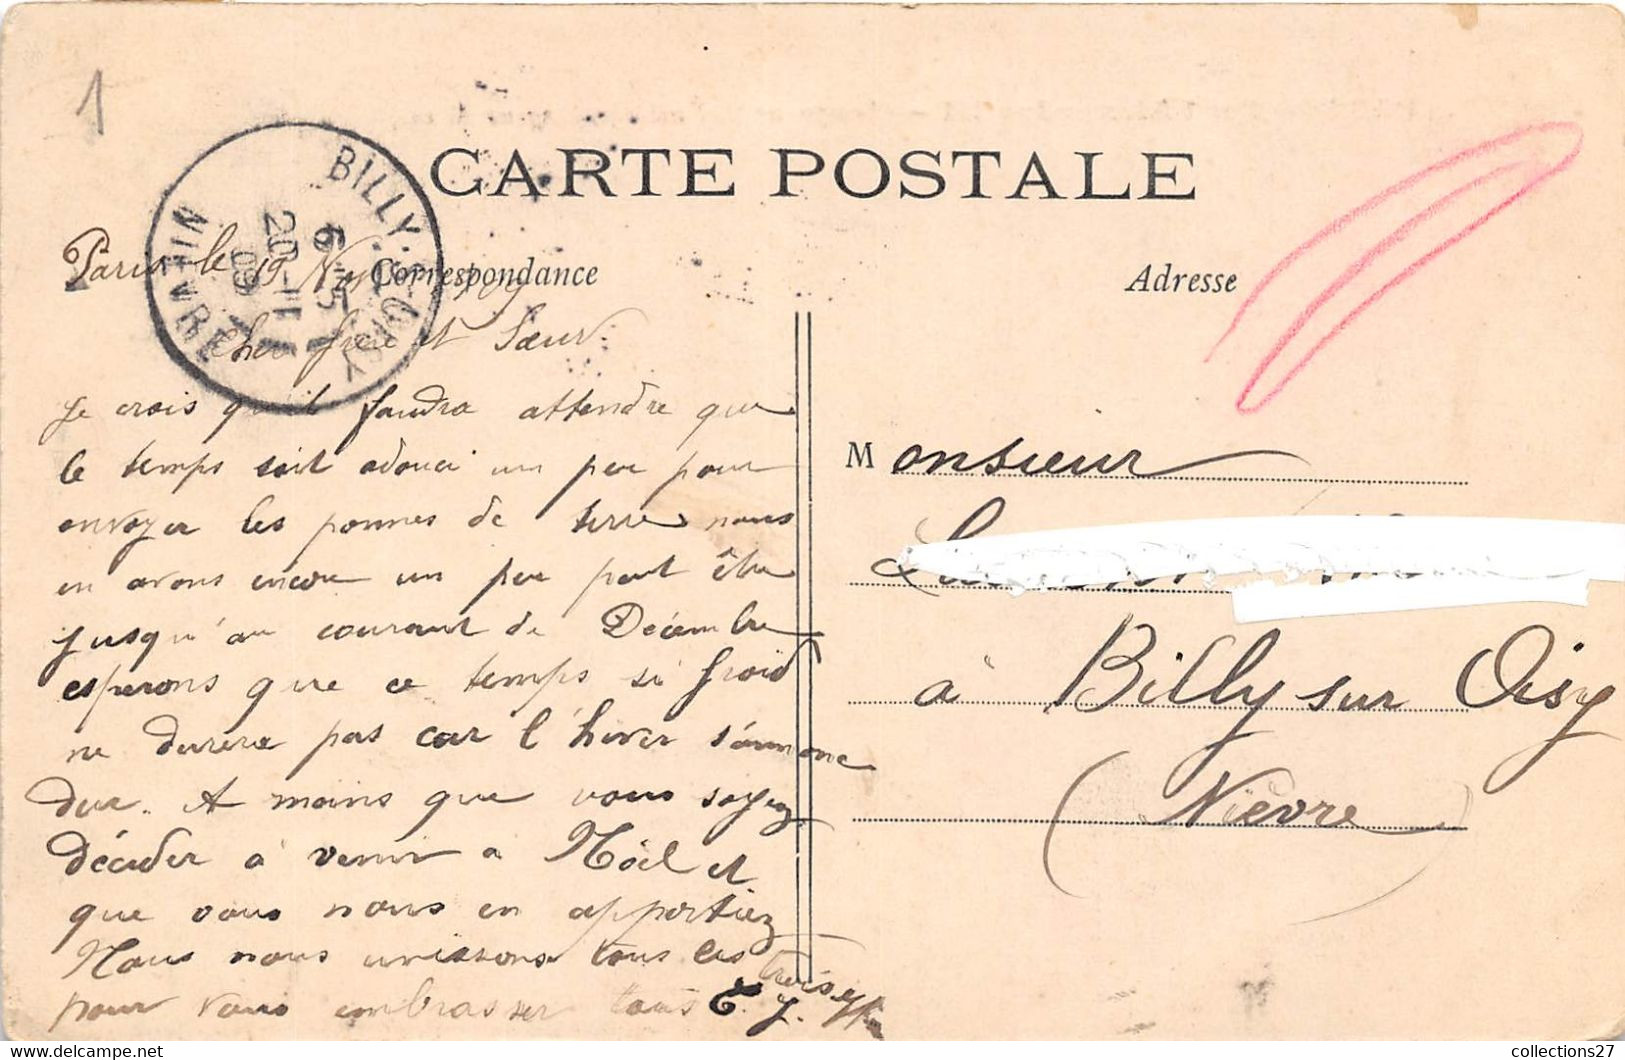 1
CARTE POSTALE
BILLY-S-OISY
6-15
20-11
09
NIÈVRE
Correspondance
Adresse
Paris le 19 Nov 1909
Cher frere et Sœur
Je crois qu'il faudra attendre que
le temps soit adouci un peu pour
envoyer les pommes de terre nous
en avons encore un peu peut être
jusqu'au courant de Décembre
esperons que ce temps si froid
ne durera pas car l'hiver s'annonce
dur. A moins que vous soyez
décider à venir a Nöel et
que vous nous en apportiez
Nous nous unissons tous les trois
pour vous embrasser tous
Monsieur
à Billy sur Oisy
(Nièvre)
collections27